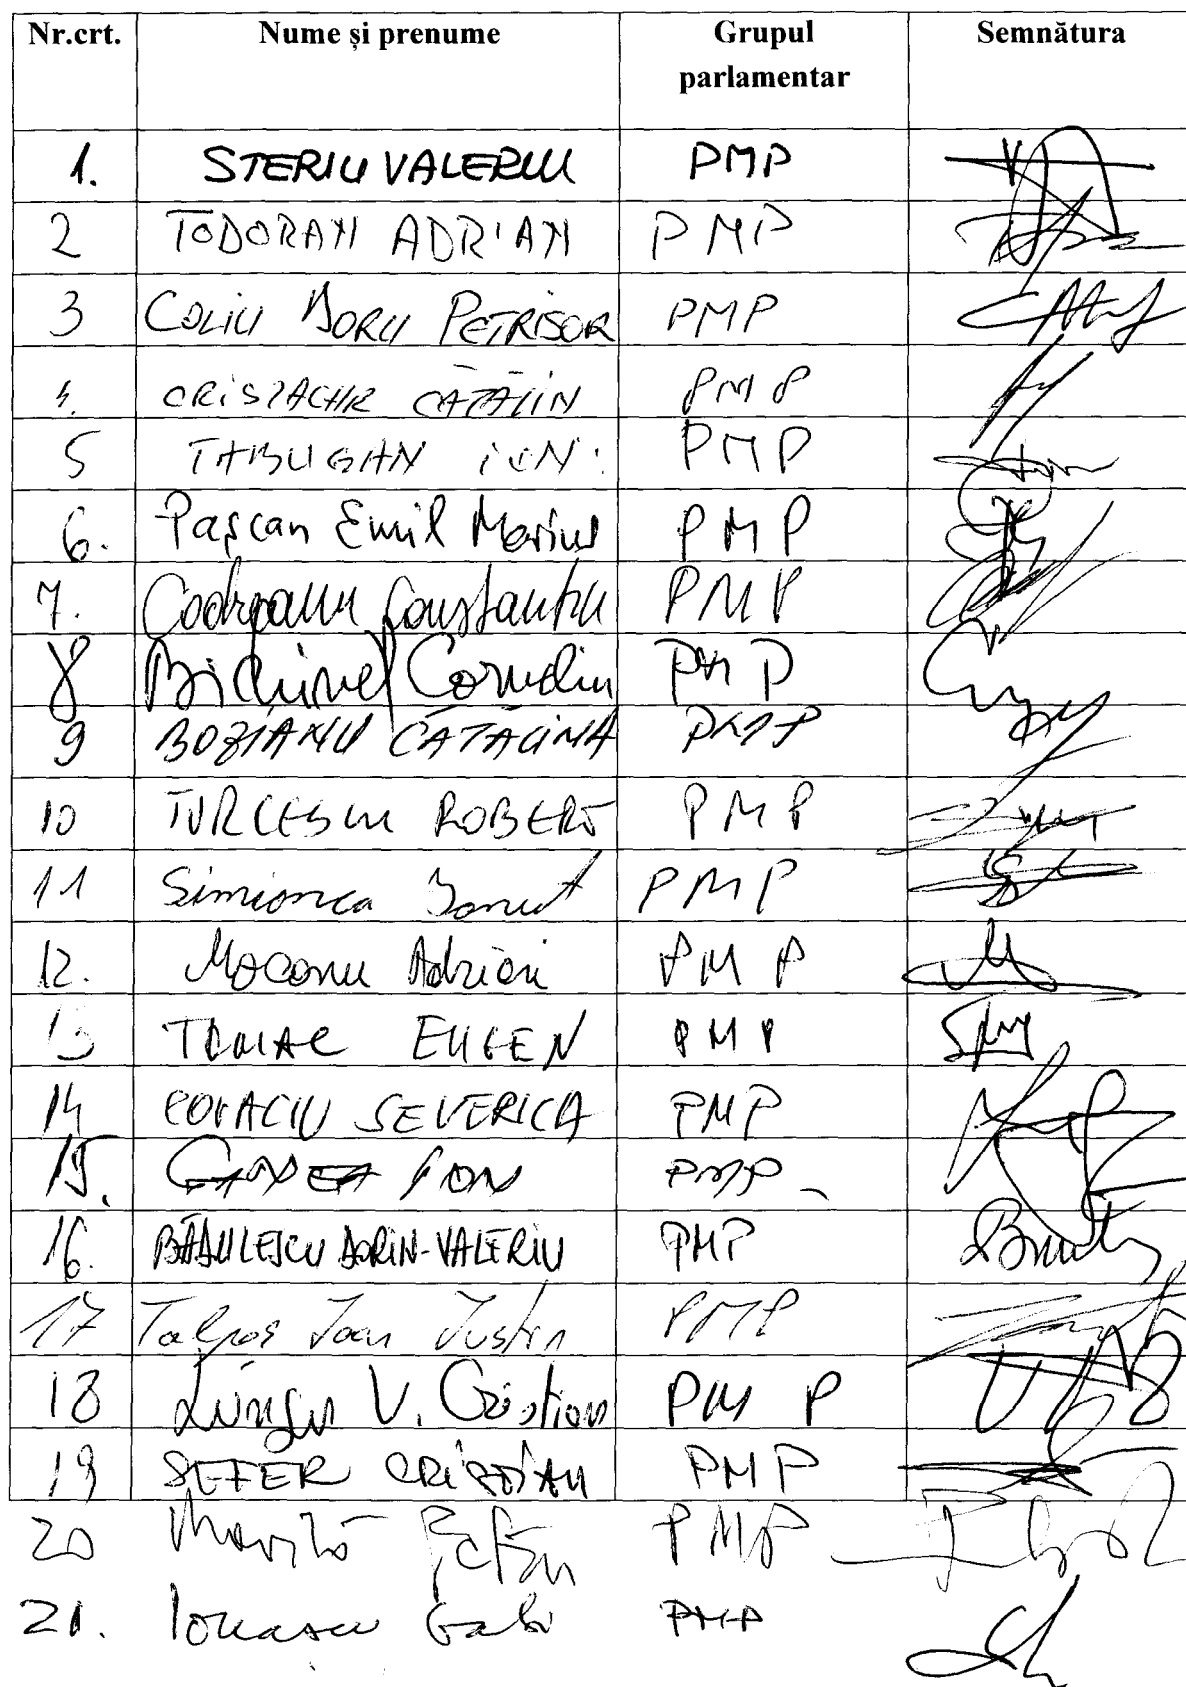 Nr.crt. Nume și prenume Grupul parlamentar Semnătura
1. STERIU VALERIU PMP
2 TODORAN ADRIAN PMP
3 COLIU DORU PETRISOR PMP
4. CRISTACHE CĂTĂLIN PMP
5 TABUGAN ION PMP
6. Pașcan Emil Marius PMP
7. Codreanu Constantin PMP
8 Bichineț Corneliu PMP
9 BOZIANU CATALINA PMP
10 TURCESCU ROBERT PMP
11 Simionca Ionut PMP
12. Mocanu Adrian PMP
13 TOMAC EUGEN PMP
14 COVACIU SEVERICA PMP
15. PMP
16. BĂDULESCU DORIN-VALERIU PMP
17 Talpos Ioan Iustin PMP
18 Lungu V. Cristian PMP
19 SEFER CRISTIAN PMP
20 PMP
21. Ionascu Gabi PMP